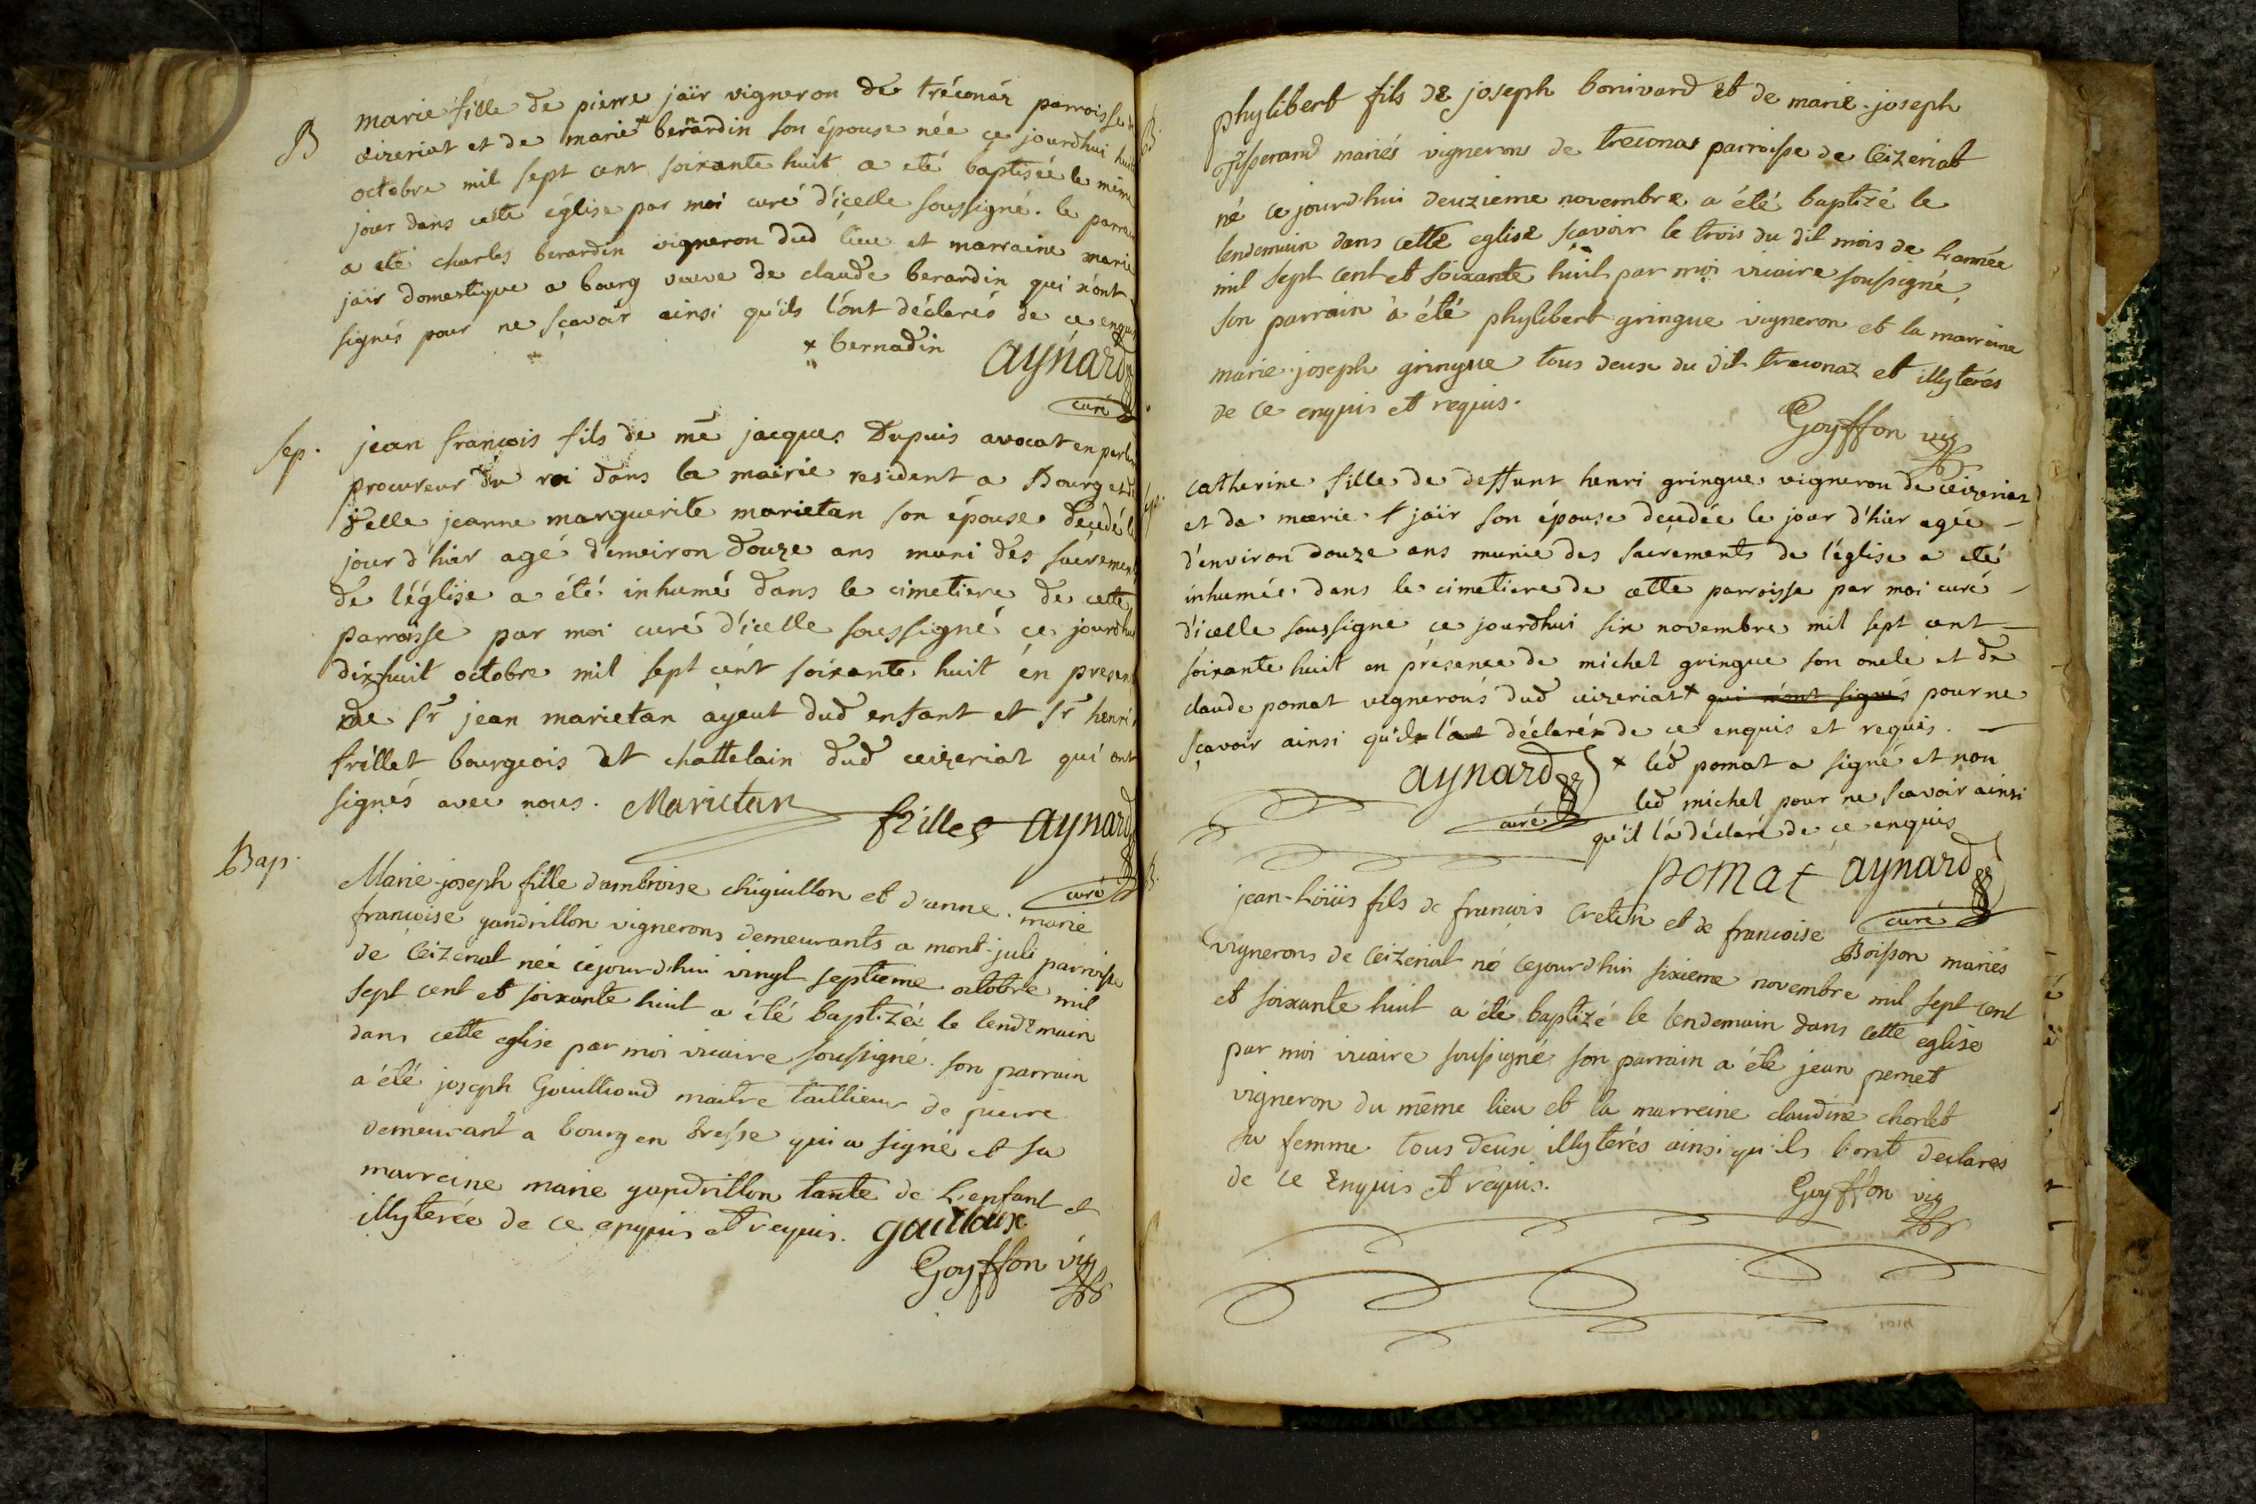 B
marie fille de pierre jaïr vigneron de tréconáz parroisse de
ceizeriat et de marie * berardin son épouse née ce jourdhui huit
octobre mil sept cent soixante huit a eté baptisée le même
jour dans cette église par moi curé d'icelle soussigné. le parrain
a eté charles berardin vigneron dud lieu et marraine marie
jaïr domestique a bourg veuve de claude berardin qui n'ont
signés pour ne sçavoir ainsi qu'ils l'ont déclarés de ce enquis
* bernadin aynard
curé
sep.
jean françois fils de me jacques Dupuis avocat en parlem
procureur du roi dans la mairie resident a Bourg et de
delle jeanne marguerite marietan son épouse decedé le
jour d'hier agé d'environ douze ans muni des sacrements
de l'église a été inhumé dans le cimetiere de cette
parroisse par moi curé d'icelle soussigné ce jourdhui
dixhuit octobre mil sept cent soixante huit en presence
de sr jean marietan ayeul dud enfant et sr henri
frillet bourgeois et chattelain dud ceizeriat qui ont
signés avec nous. Marietan
frillet aynard
curé
Bap.
Marie-joseph fille d'ambroise chiquillon et d'anne. marie
francoise gandrillon vignerons demeurants a mont-juli parroisse
de Ceizeriat née cejourdhui vingt septieme octobre mil
sept cent et soixante huit a été baptizée le lendemain
dans cette eglise par moi vicaire soussigné. son parrain
a été joseph Gouilloud maitre taillieur de pierre
demeurant a bourg en bresse qui a signé et sa
marreine marie gandrillon tante de L'enfant et
illyterée de ce enquis et requis. gouilloux
Goyffon vic
B.
phylibert fils de joseph bonivard et de marie-joseph
Tisserand mariés vignerons de treconas parroisse de Ceizeriat
né ce jourdhui deuzieme novembre a été baptizé le
lendemain dans cette eglise sçavoir le trois du dit mois de L'année
mil sept cent et soixante huit par moi vicaire soussigné,
son parrain a été phylibert gringue vigneron et la marreine
marie-joseph gringue tous deux du dit treconaz et illyterés
de ce enquis et requis.
Goyffon vic
sep.
catherine fille de deffunt henri gringue vigneron de ceizeriat
et de marie jaïr son épouse decedée le jour d'hier agée
d'environ douze ans munie des sacrements de l'église a eté
inhumée dans le cimetiere de cette parroisse par moi curé
d'icelle soussigne ce jourdhui six novembre mil sept cent
soixante huit en présence de michel gringue son oncle et de
claude pomat vignerons dud ceizeriat * qui n'ont signés pour ne
sçavoir ainsi qu'il l'a déclaré de ce enquis et requis.
aynard
curé
* led pomat a signé et non
led michel pour ne sçavoir ainsi
qu'il l'a déclaré de ce enquis
pomat aynard
curé
B.
jean-Loüis fils de francois Cretin et de francoise Boisson mariés
vignerons de Ceizeriat né cejourdhui sixieme novembre mil sept cent
et soixante huit a été baptizé le lendemain dans cette église
par moi vicaire soussigné son parrain a été jean pernet
vigneron du même lieu et la marreine claudine chorlet
sa femme tous deux illyterés ainsi qu'ils l'ont declarés
de ce Enquis et requis.
Goyffon vic